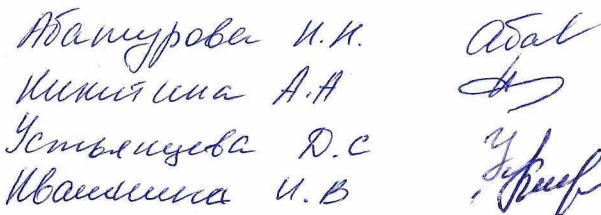 Абатурова Н.Н. Абат
Никитина А.А
Устьянцева Д.С
Ивашнина И.В